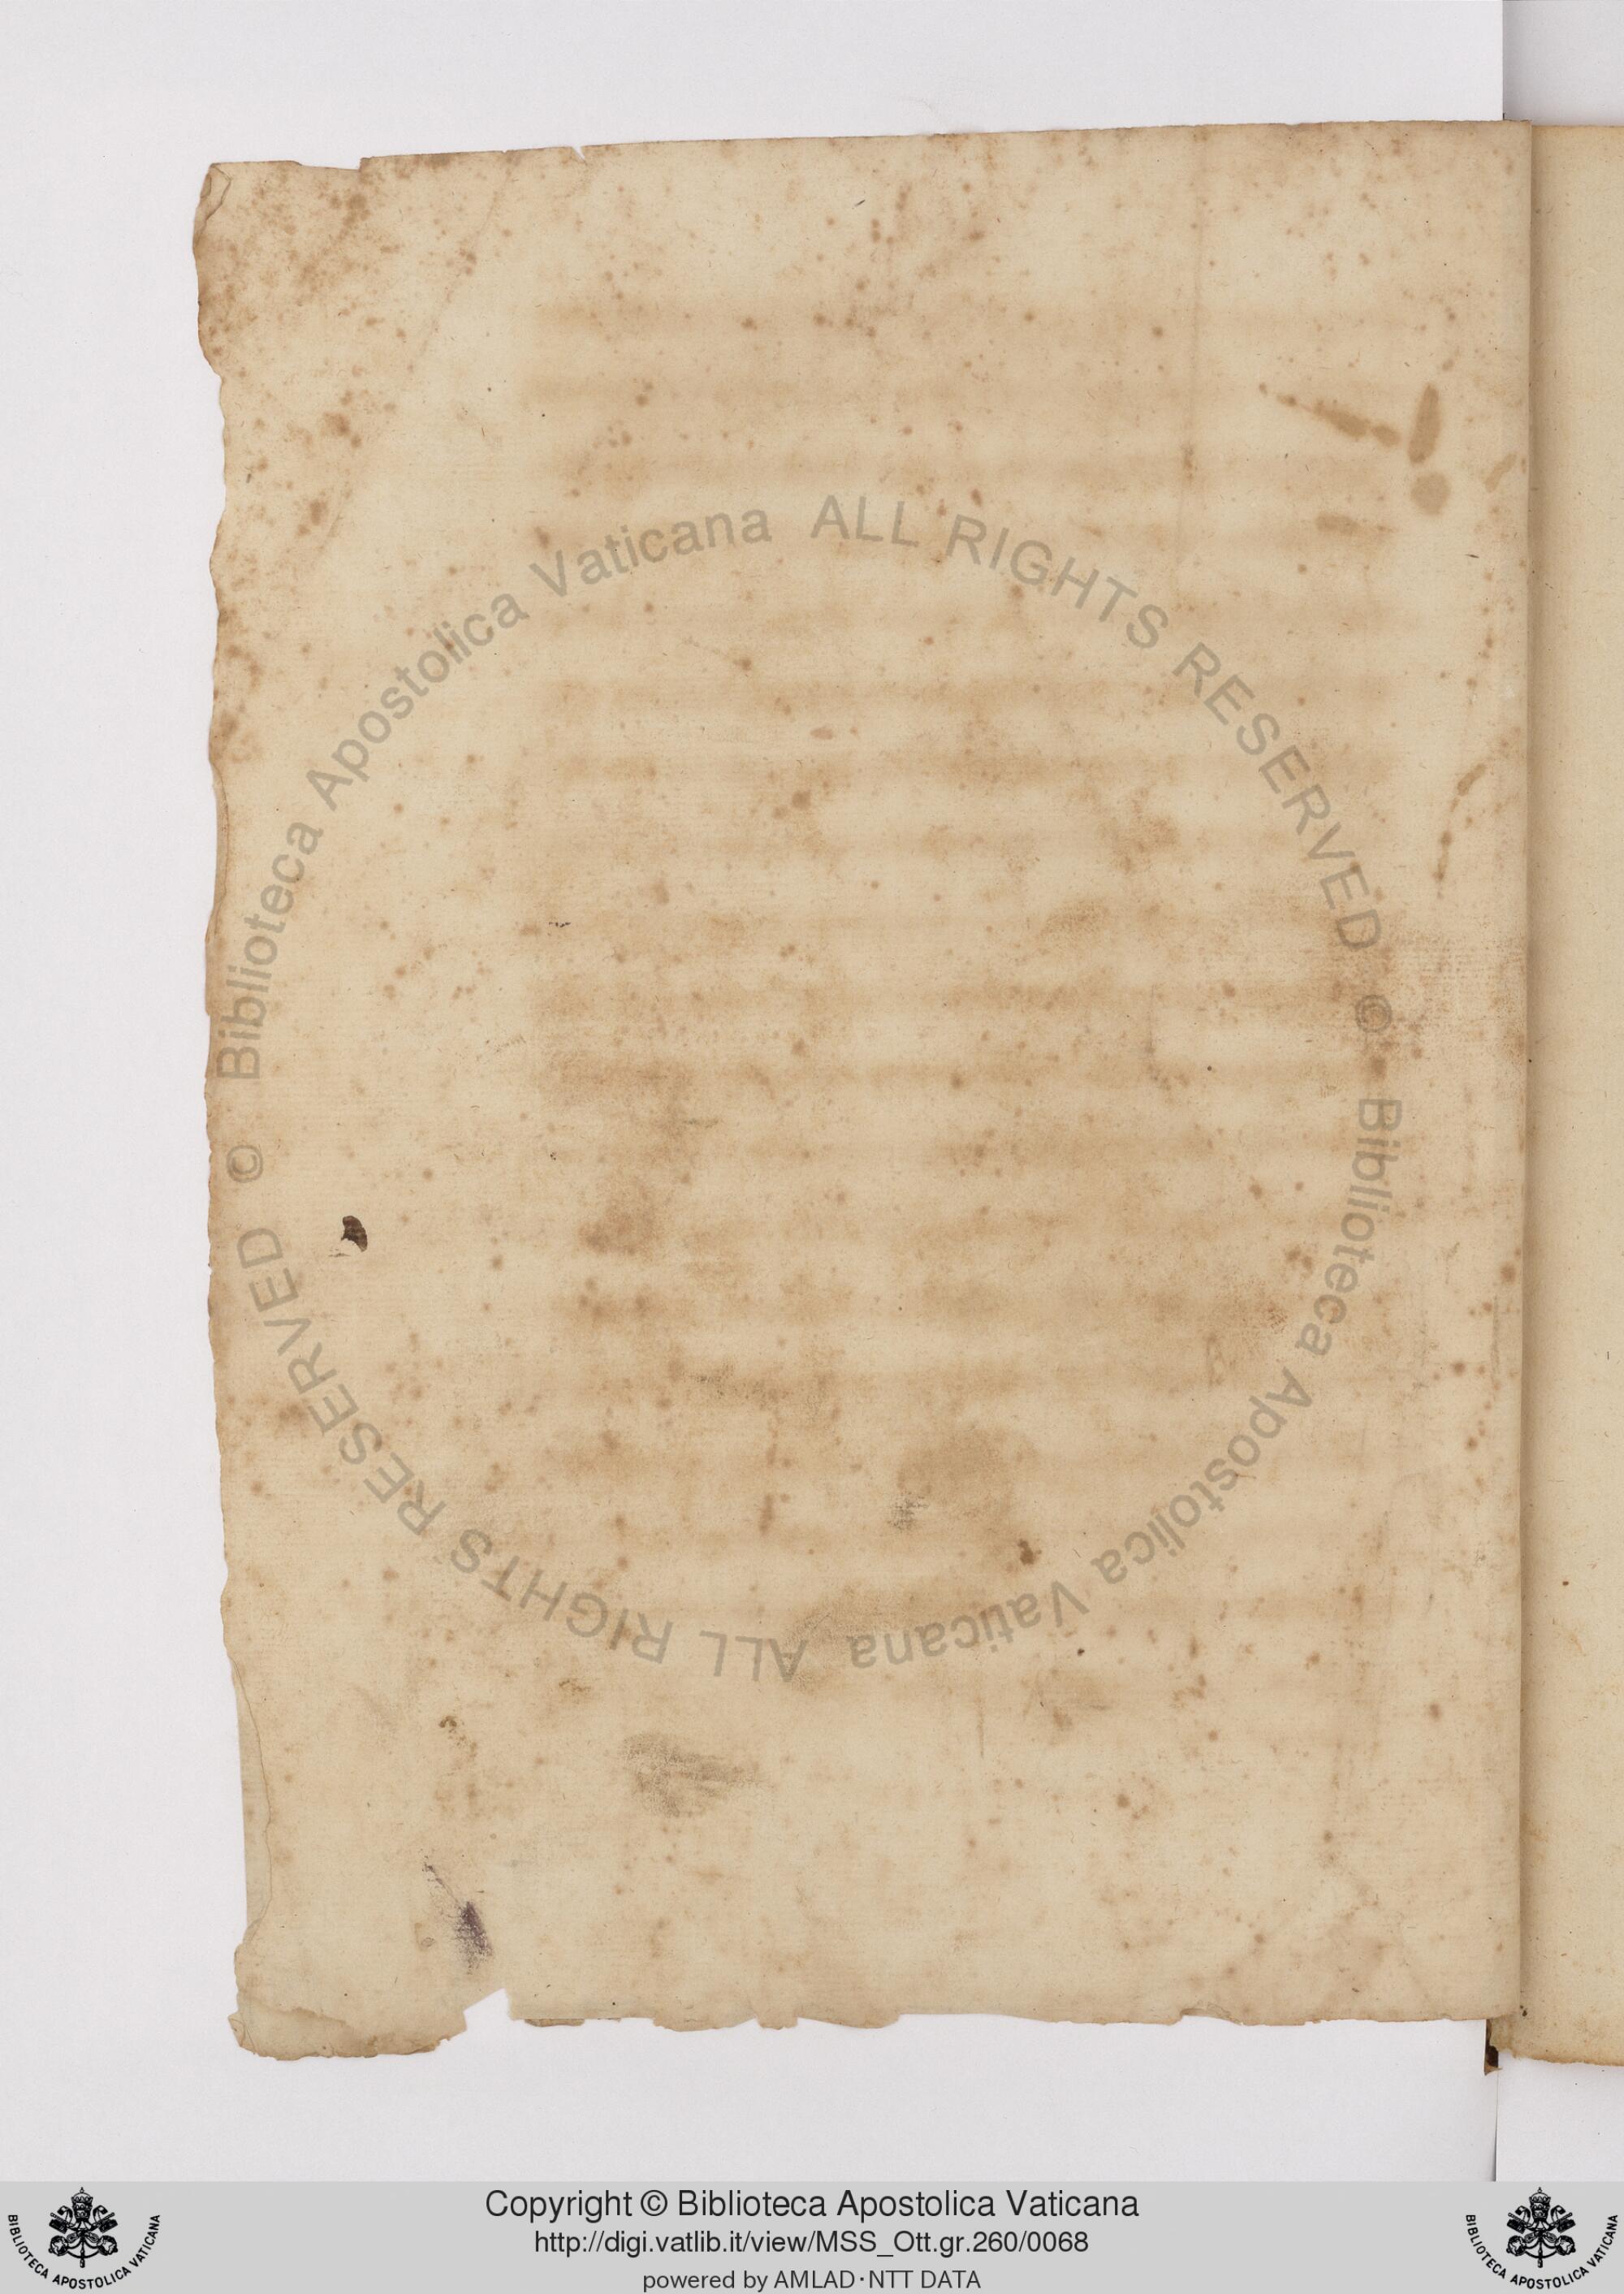 Biblioteca Apostolica Vaticana ALL RIGHTS RESERVED ©
Biblioteca Apostolica Vaticana ALL RIGHTS RESERVED ©
Copyright © Biblioteca Apostolica Vaticana
http://digi.vatlib.it/view/MSS_Ott.gr.260/0068
powered by AMLAD·NTT DATA
BIBLIOTECA APOSTOLICA VATICANA
BIBLIOTECA APOSTOLICA VATICANA